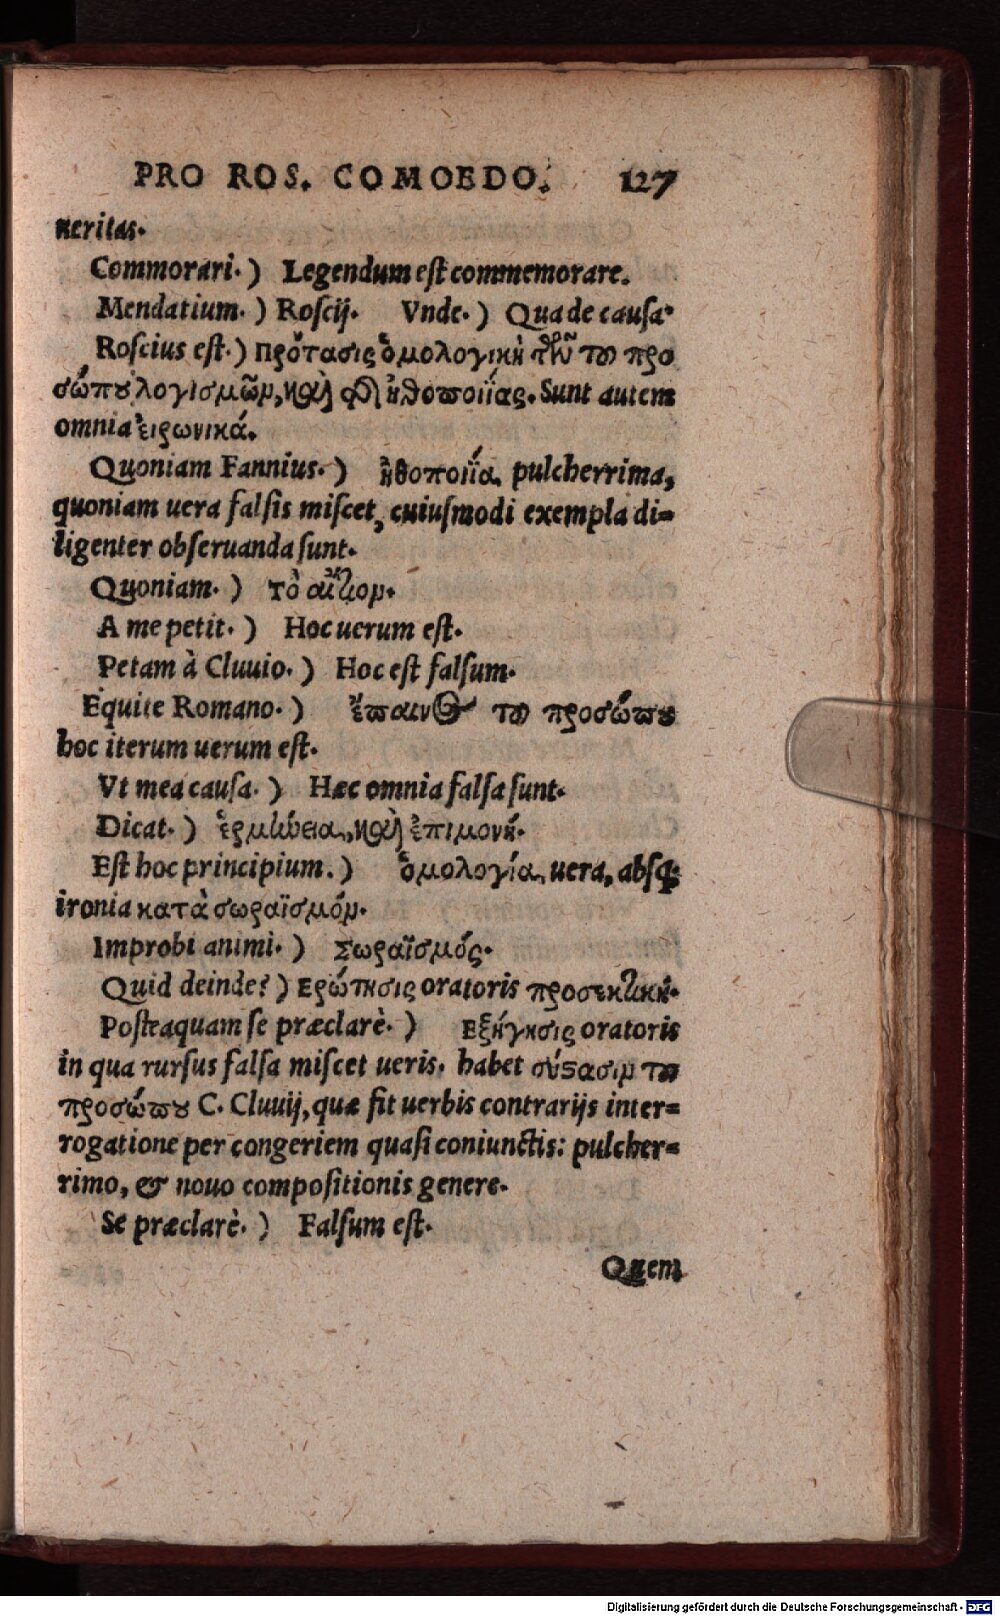 PRO ROS. COMOEDO. 127
ueritas.
Commorari.) Legendum est commemorare.
Mendatium.) Roscij. Vnde.) Qua de causa.
Roscius est.) Πρότασις ὁμολογικὴ τῶν τοῦ προ
σώπου λογισμῶν, καὶ ἠθοποιίας. Sunt autem
omnia εἰρωνικά.
Quoniam Fannius.) ἠθοποιία pulcherrima,
quoniam uera falsis miscet, cuiusmodi exempla di-
ligenter obseruanda sunt.
Quoniam.) τὸ αἴτιον.
A me petit.) Hoc uerum est.
Petam à Cluuio.) Hoc est falsum.
Equite Romano.) ἔπαινος τοῦ προσώπου
hoc iterum uerum est.
Vt mea causa.) Hæc omnia falsa sunt.
Dicat.) ἑρμηνεία, καὶ ἐπιμονή.
Est hoc principium.) ὁμολογία, uera, absq;
ironia κατὰ σωραϊσμόν.
Improbi animi.) Σωραϊσμός.
Quid deinde?) Ερώτησις oratoris προσεκτική.
Posteaquam se præclarè.) Εξήγησις oratoris
in qua rursus falsa miscet ueris. habet σύστασιν τοῦ
προσώπου C. Cluuij, quæ fit uerbis contrarijs inter-
rogatione per congeriem quasi coniunctis: pulcher-
rimo, & nouo compositionis genere.
Se præclarè.) Falsum est.
Quem
Digitalisierung gefördert durch die Deutsche Forschungsgemeinschaft - DFG